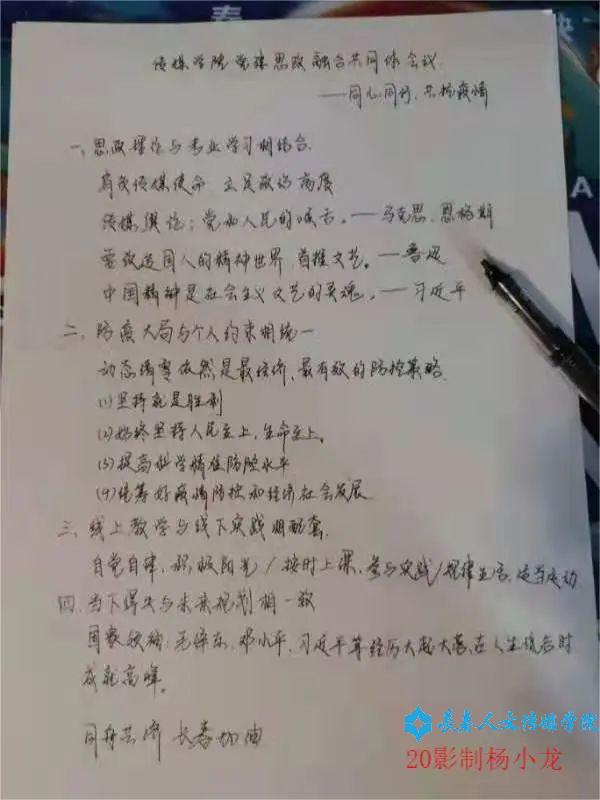 传媒学院党课思政融合共同体会议
——同心同行,共抗疫情
一、思政理论与专业学习相结合
肩负传媒使命 立足政治高度
传媒舆论:党和人民的喉舌。——马克思、恩格斯
要改造国人的精神世界,首推文艺。——鲁迅
中国精神是社会主义文艺的灵魂。——习近平
二、防疫大局与个人约束相统一
动态清零依然是最经济、最有效的防控策略
(1)坚持就是胜利
(2)始终坚持人民至上,生命至上。
(3)提高科学精准防控水平
(4)统筹好疫情防控和经济社会发展
三、线上教学与线下实践相配套
自觉自律、积极阳光/按时上课、参与实践/规律生活、适当运动
四、当下得失与未来规划相一致
国家领袖:毛泽东、邓小平、习近平等经历大起大落、在人生低谷时
成就高峰。
同舟共济 长春加油
长春人文传媒学院
20影制杨小龙
春
A